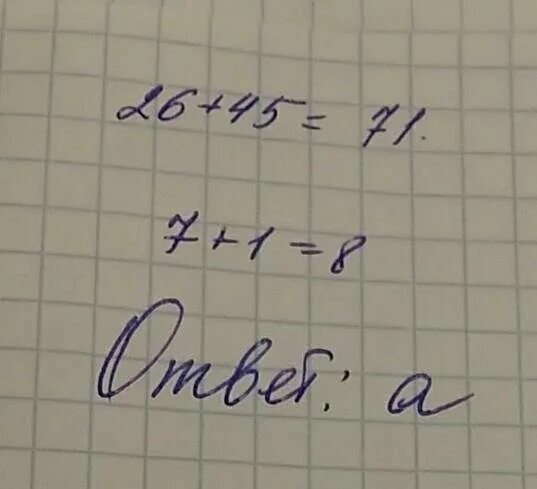 26+45= 71.
7+1=8
Ответ: а